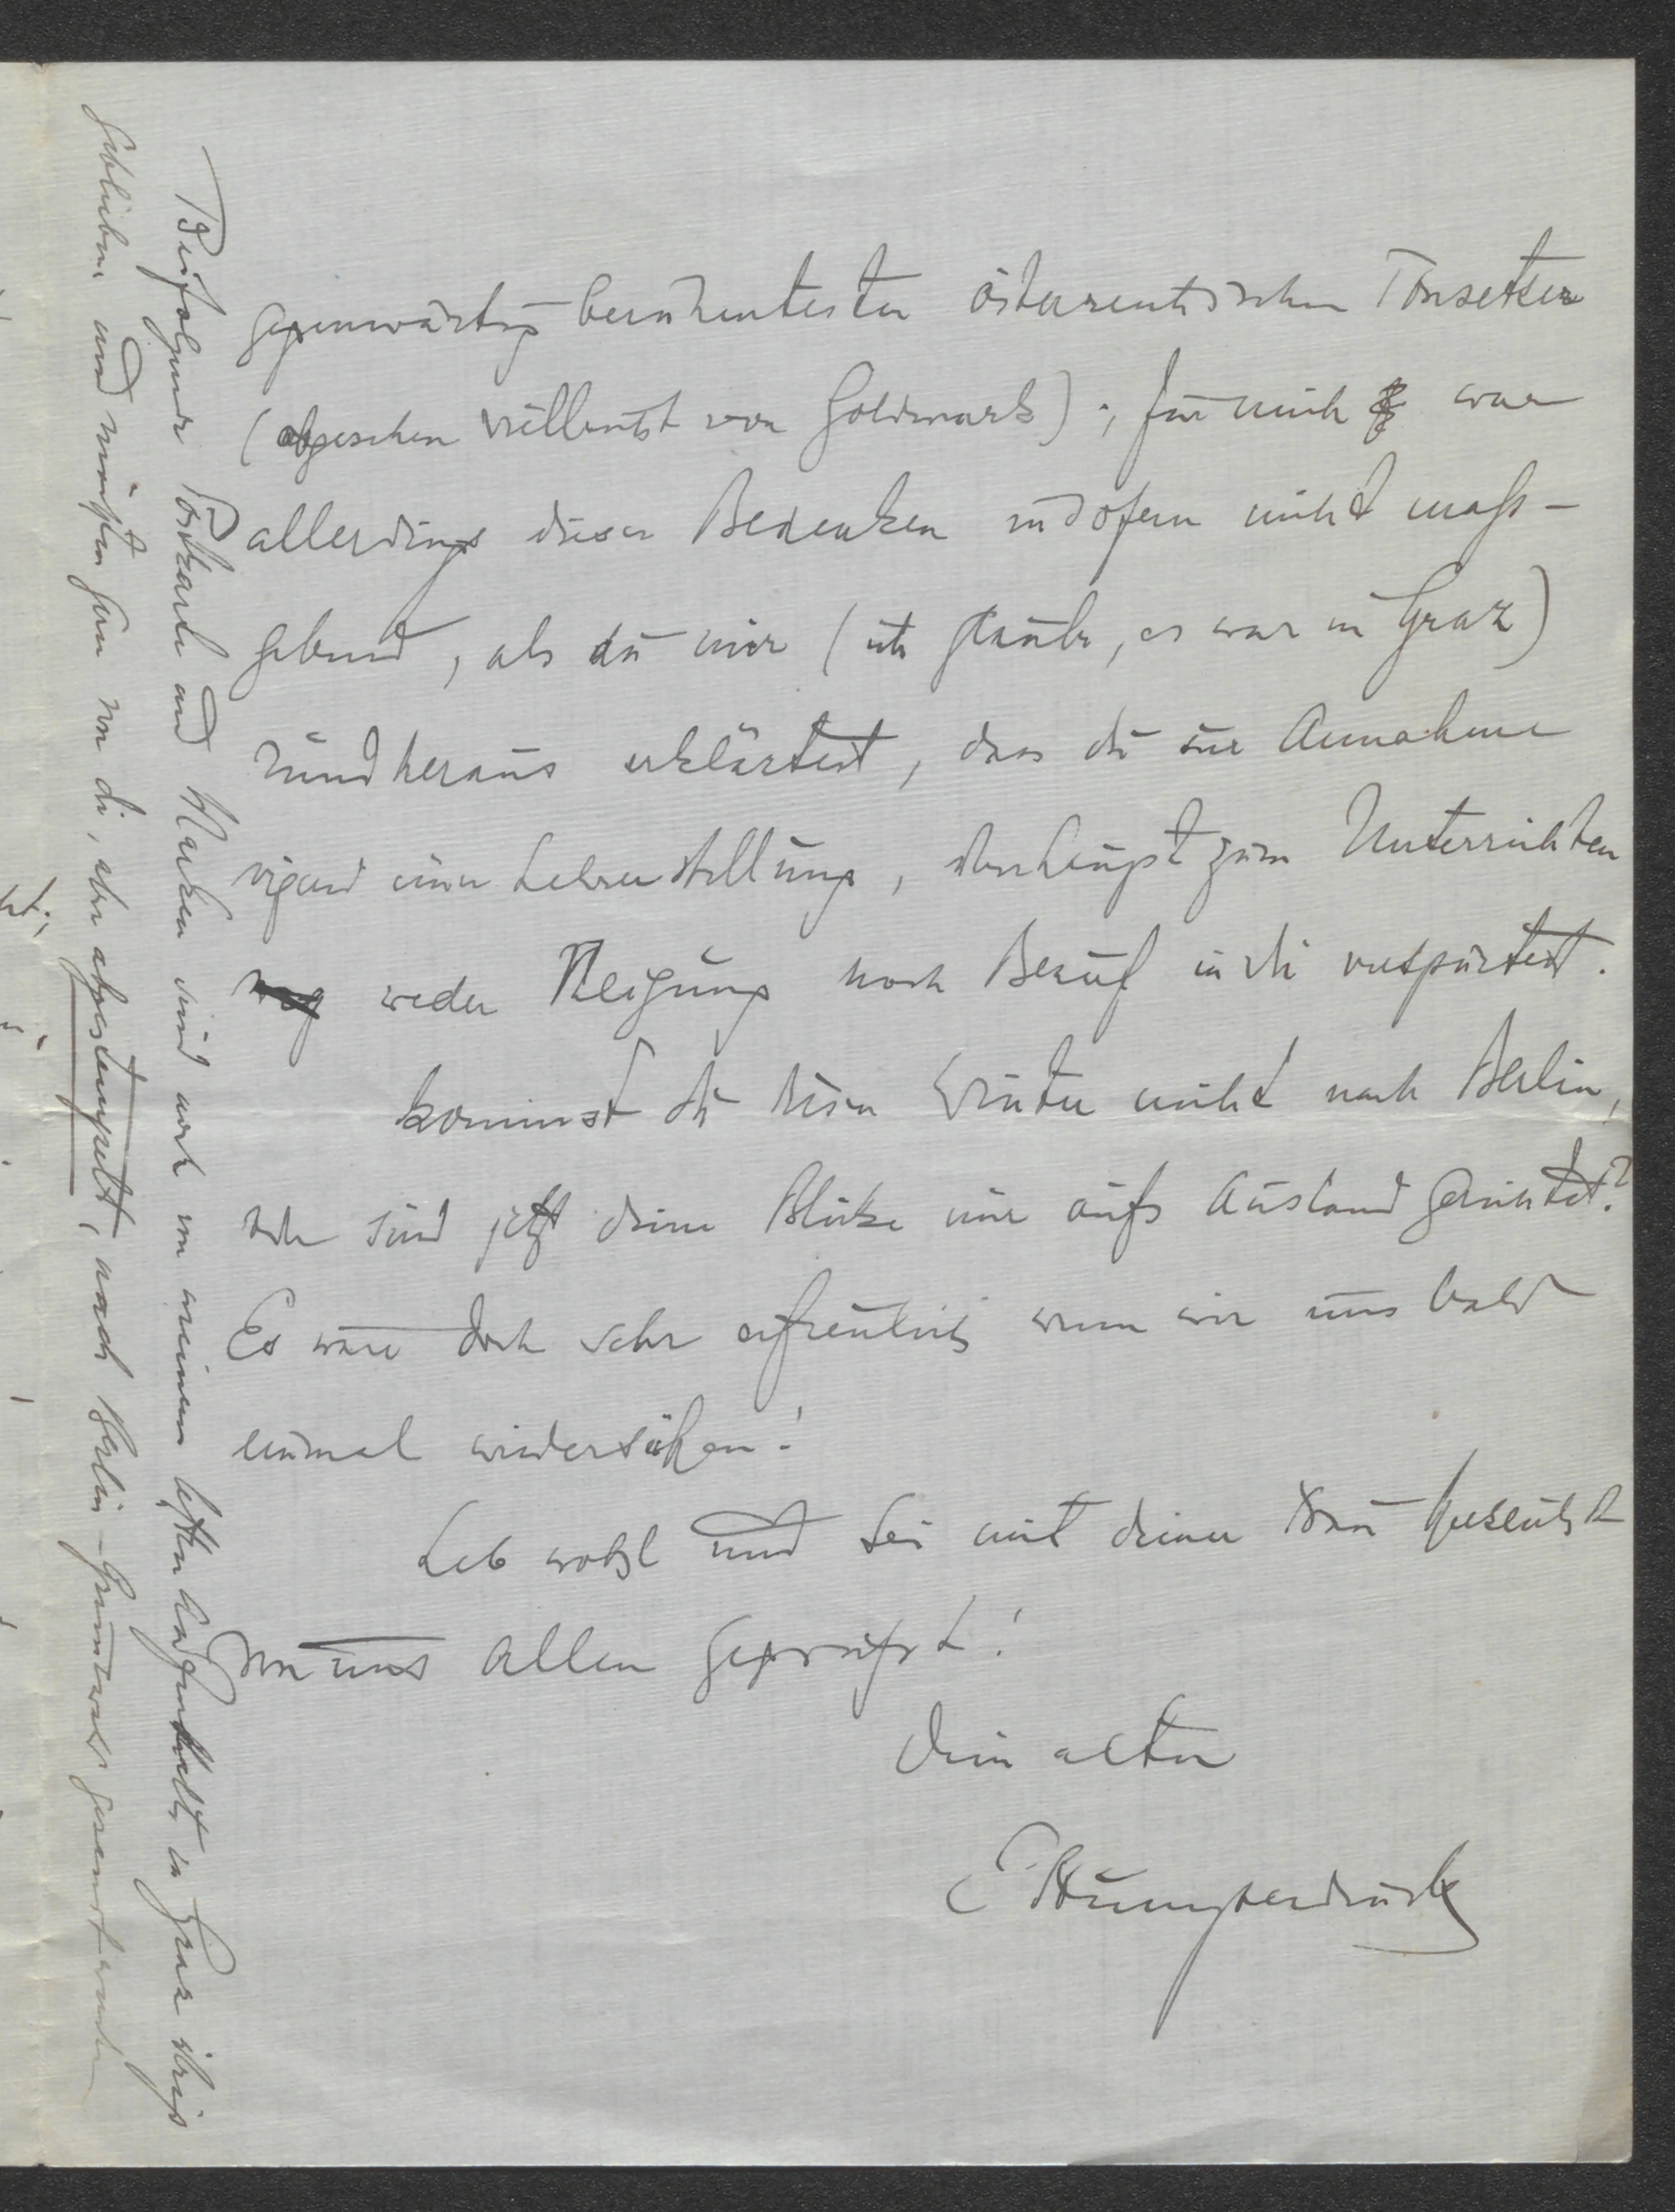 gegenwärtig berühmtesten österreichischen Tonsetzer
(abgesehen vielleicht von Goldmark); für mich war
allerdings dieses Bedenken insofern nicht mass-
gebend, als du mir (ich glaube, es war in Graz)
rundheraus erklärtest, dass du zur Annahme
irgend einer Lehrerstellung, überhaupt zum Unterrichten
weder Neigung noch Beruf in dir verspürtest.
Kommst du diesen Winter nicht nach Berlin,
oder sind jetzt deine Blicke nur aufs Ausland gerichtet?
Es wäre doch sehr erfreulich wenn wir uns bald
einmal wiedersähen!
Leb wohl und sei mit deiner Frau herzlichst
von uns allen gegrüsst!
Dein alter
E Humperdinck
Beifolgende Postkarte und Marken sind noch von meinem letzten Aufenthalt in Graz übrig
geblieben und möchten gern von dir, aber abgestempelt, nach Berlin-Grunewald gesandt werden